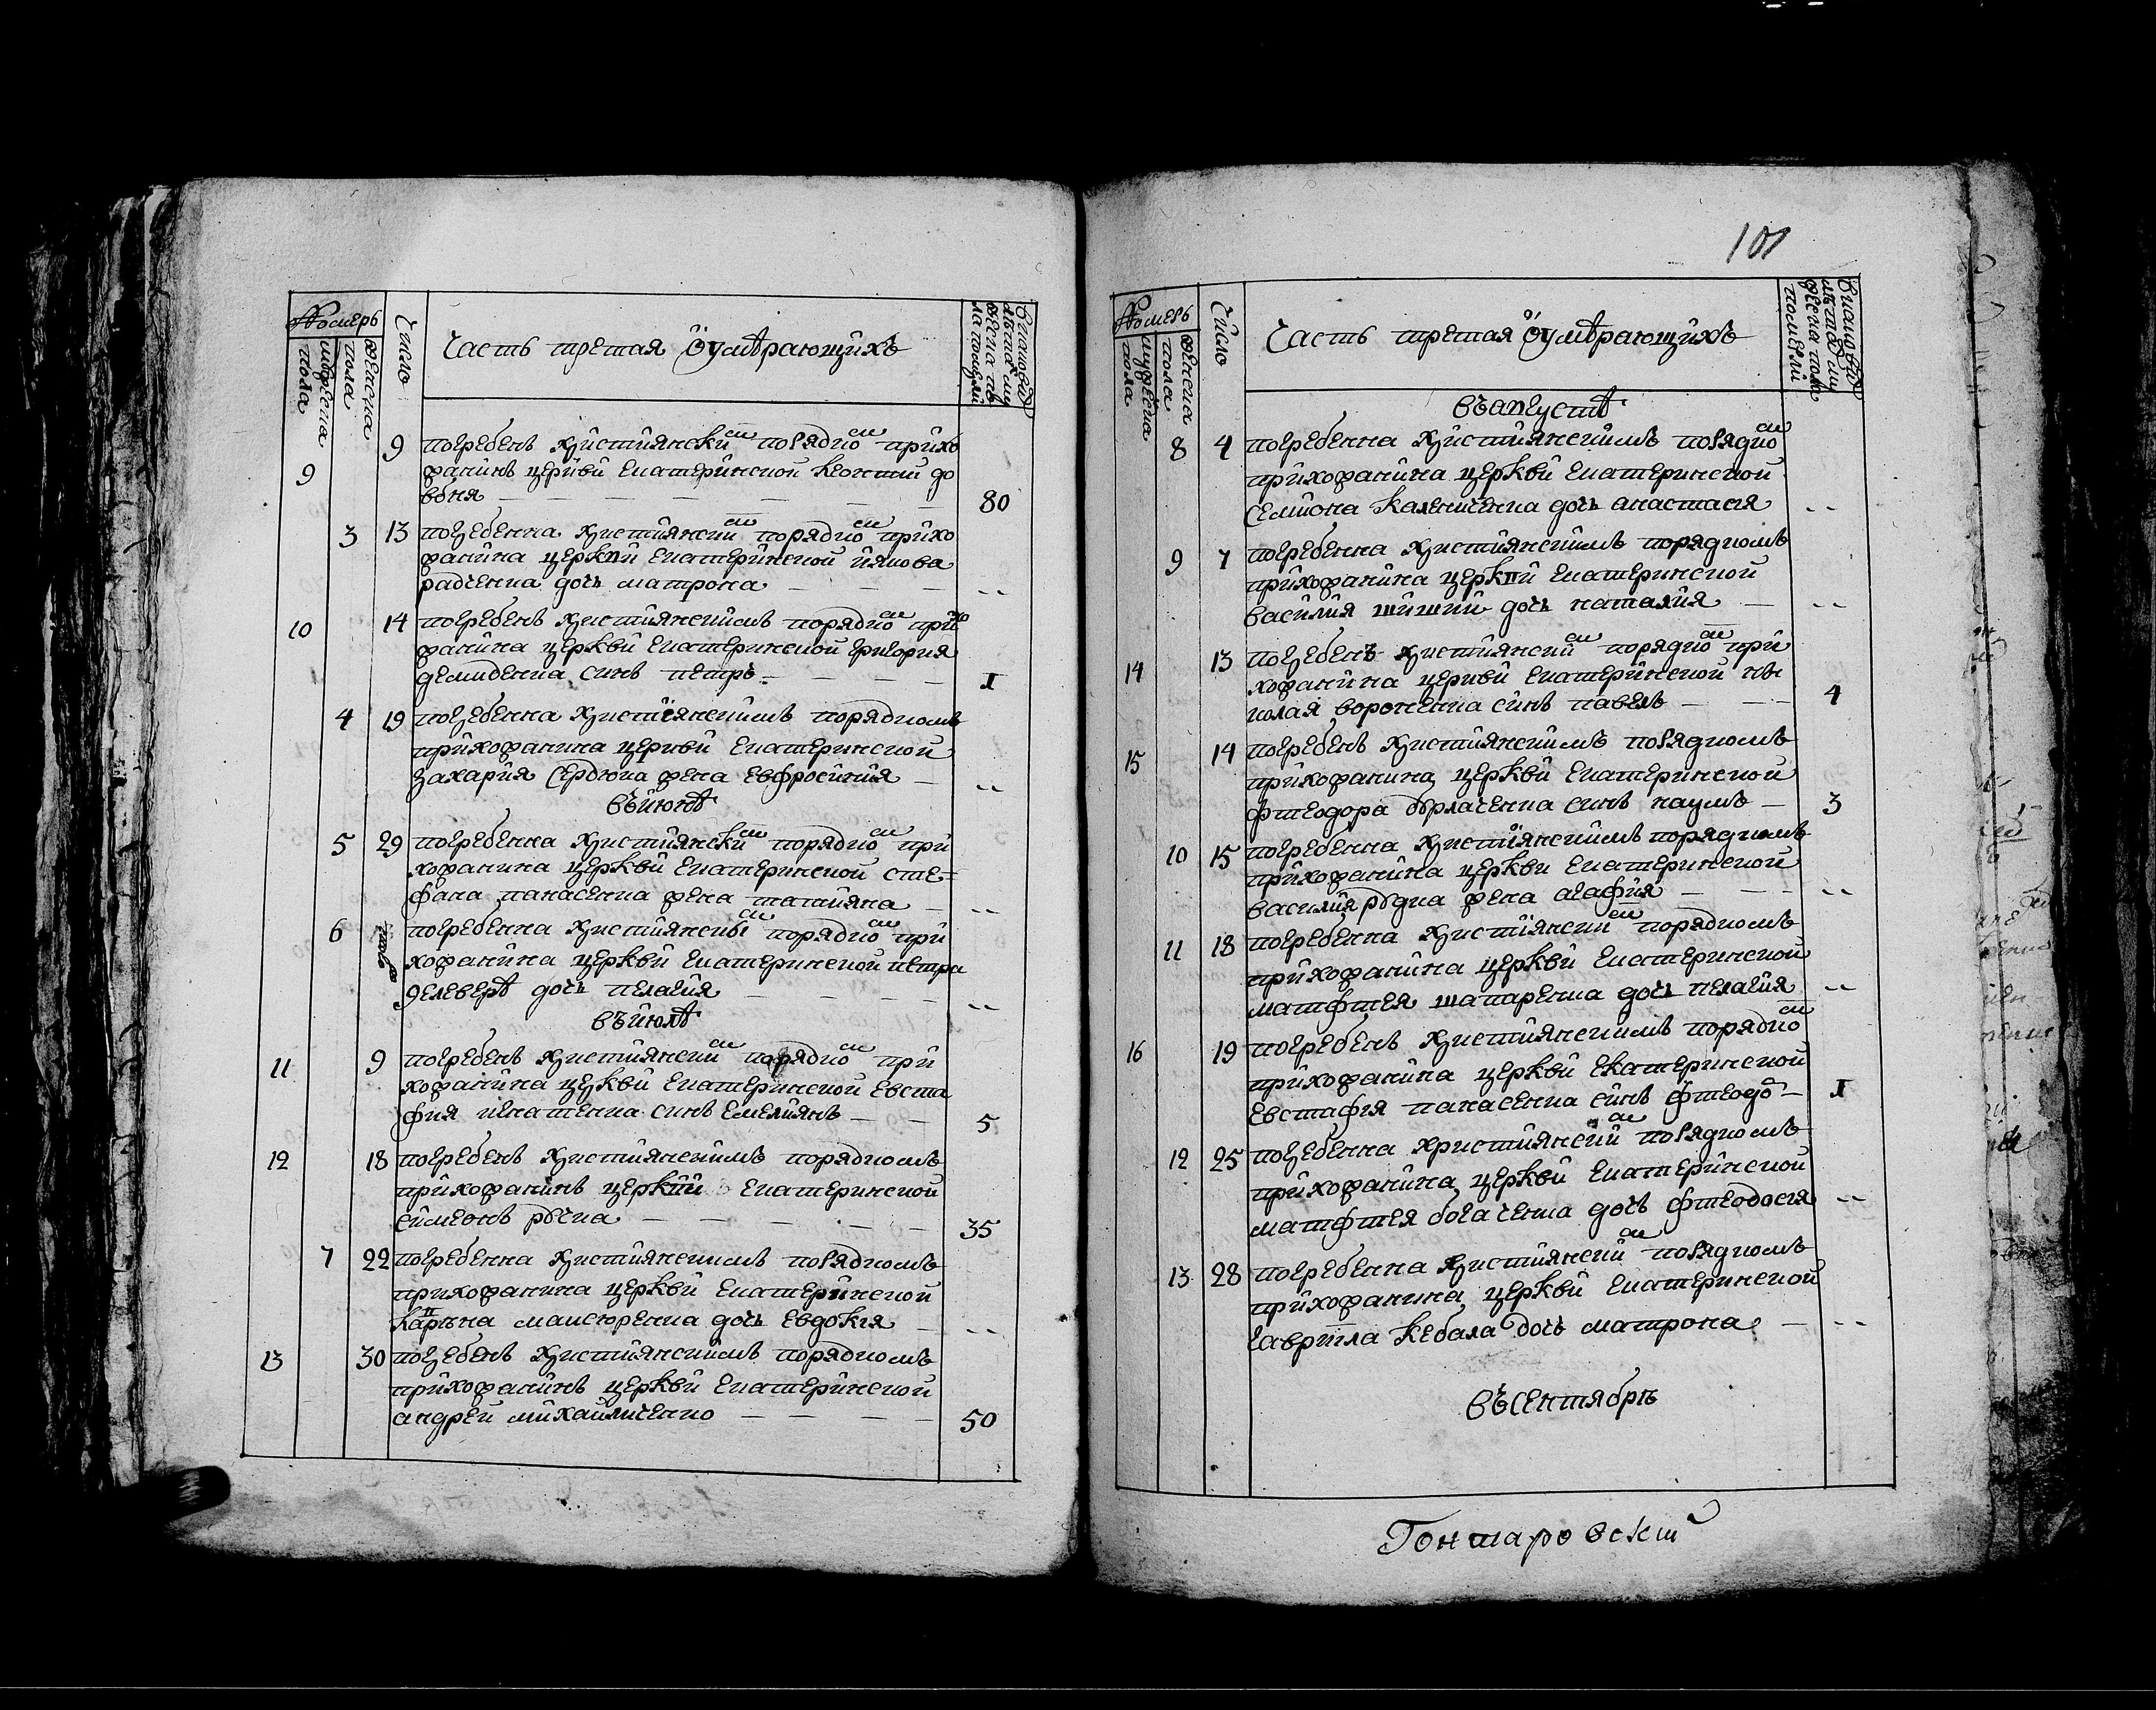 101
Номеръ
мужеска пола
женска пола
Число
Часть третая ѻумѣрающихъ
9 9 погребенъ християнскимъ порядкомъ прихо
жанинъ церкви Екатеринской Леонтий до
вбня 80
3 13 погребенна християнскимъ порядкомъ прихо
жанина церкви Екатеринской иякова
радченка дочь матрона --
10 14 погребенъ християнскимъ порядкомъ прихо
жанина церкви Екатеринской григория
демиденка синъ петръ 1
4 19 погребенна християнскимъ порядкомъ
прихожанина церкви Екатеринской
захария Сердюка жена Евфросиния --
въ июнѣ
5 29 погребенна християнскимъ порядкомъ при
хожанина церкви Екатеринской сте=
фана панасенка жена татияна --
6 погребенна християнскимъ порядкомъ при
хожанина церкви Екатеринской петра
дочь пелагия --
въ июлѣ
11 9 погребенъ християнскимъ порядкомъ при
хожанина церкви Екатеринской Евста
фия игнатенка синъ Емелиянъ 5
12 18 погребенъ християнскимъ порядкомъ
прихожанинъ церкви Екатеринской
симеонъ 35
7 22 погребенна християнскимъ порядкомъ
прихожанина церкви Екатеринской
дочь Евдокия --
13 30 погребенъ християнскимъ порядкомъ
прихожанинъ церкви Екатеринской
андрей михайличенко 50
Номеръ
мужеска пола
женска пола
Число
Часть третая ѻумѣрающихъ
въ августѣ
8 4 погребенна християнскимъ порядкомъ
прихожанина церкви Екатеринской
Семиона Калениченка дочь анастасия --
9 7 погребенна християнскимъ порядкомъ
прихожанина церкви Екатеринской
василия шишки дочь наталия --
14 13 погребенъ християнскимъ порядкомъ при
хожанина церкви Екатеринской ни
колая вороненка синъ павелъ 4
15 14 погребенъ християнскимъ порядкомъ
прихожанина церкви Екатеринской
фтеодора бурлаченка синъ наумъ 3
10 15 погребенна християнскимъ порядкомъ
прихожанина церкви Екатеринской
василия рудка жена агафия --
11 18 погребенна християнскимъ порядкомъ
прихожанина церкви Екатеринской
матфтея шапаренка дочь пелагия --
16 19 погребенъ християнскимъ порядкомъ
прихожанина церкви Екатеринской
Евстафия панасенка синъ фтеодо 1
12 25 погребенна християнскимъ порядкомъ
прихожанина церкви Екатеринской
матфтея богаченка дочь фтеодосия --
13 28 погребенна християнскимъ порядкомъ
прихожанина церкви Екатеринской
гавриила Кебала дочь матрона --
въ сентябрѣ
Гончаровский